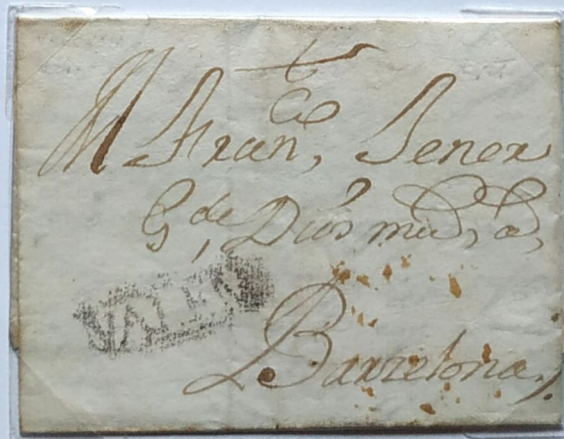 A Fran^co, Sener
G^de, Dios m^s a^s,
VALEN
Barzelona,